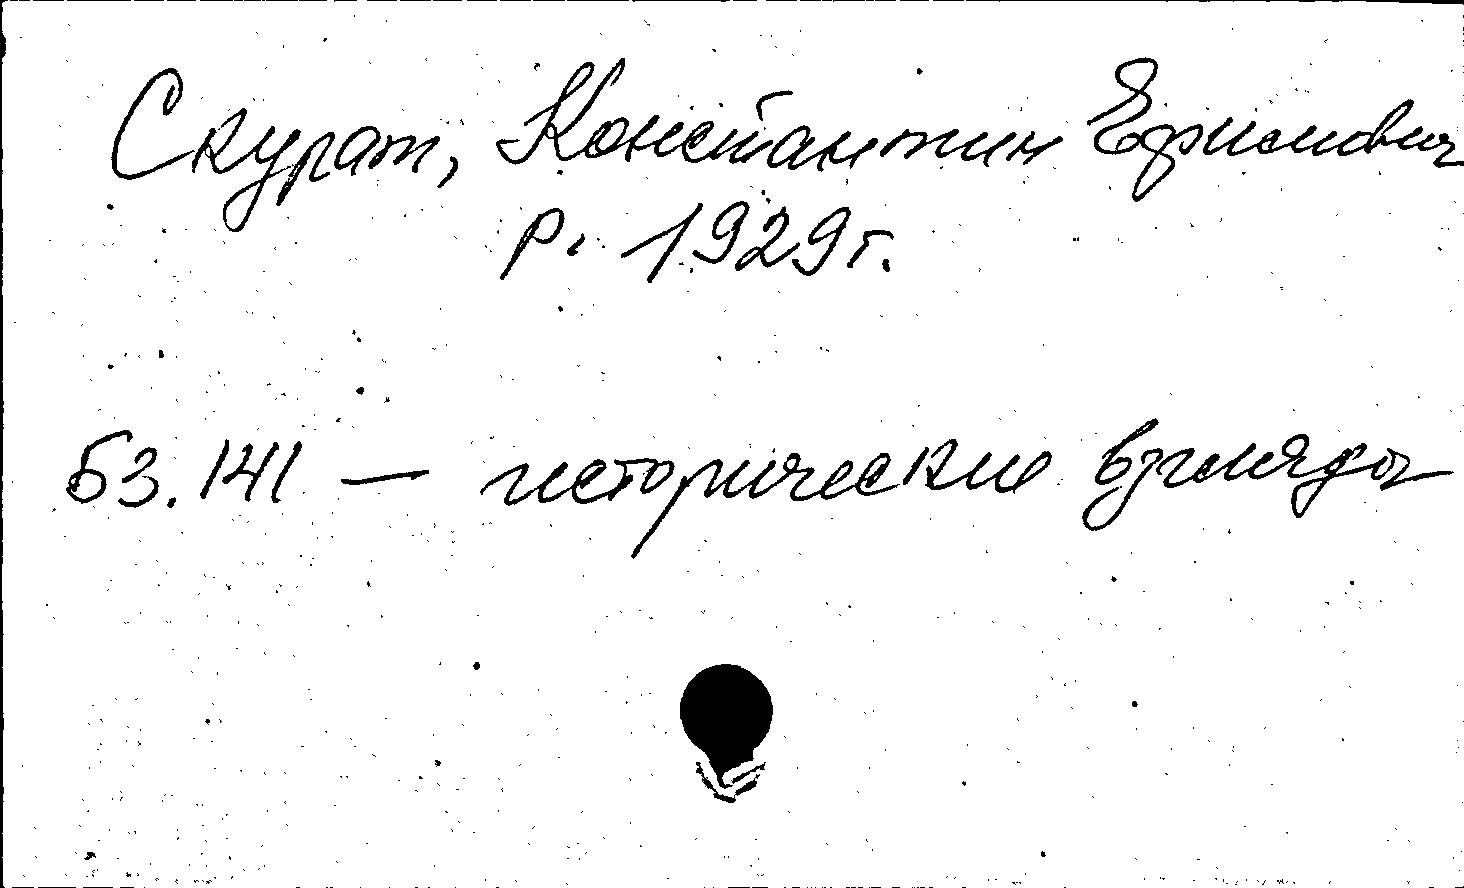 Скурат, Константин Ефимович
р. 1929 г.
Б3.141 — исторические взгляды